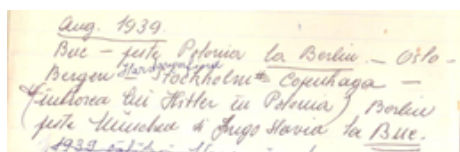 Aug. 1939.
Buc – peste Polonia la Berlin – Oslo –
Bergen Stockholm Copenhaga –
(intrarea lui Hitler în Polonia) Berlin
peste München și Jugo Slavia la Buc.
1939